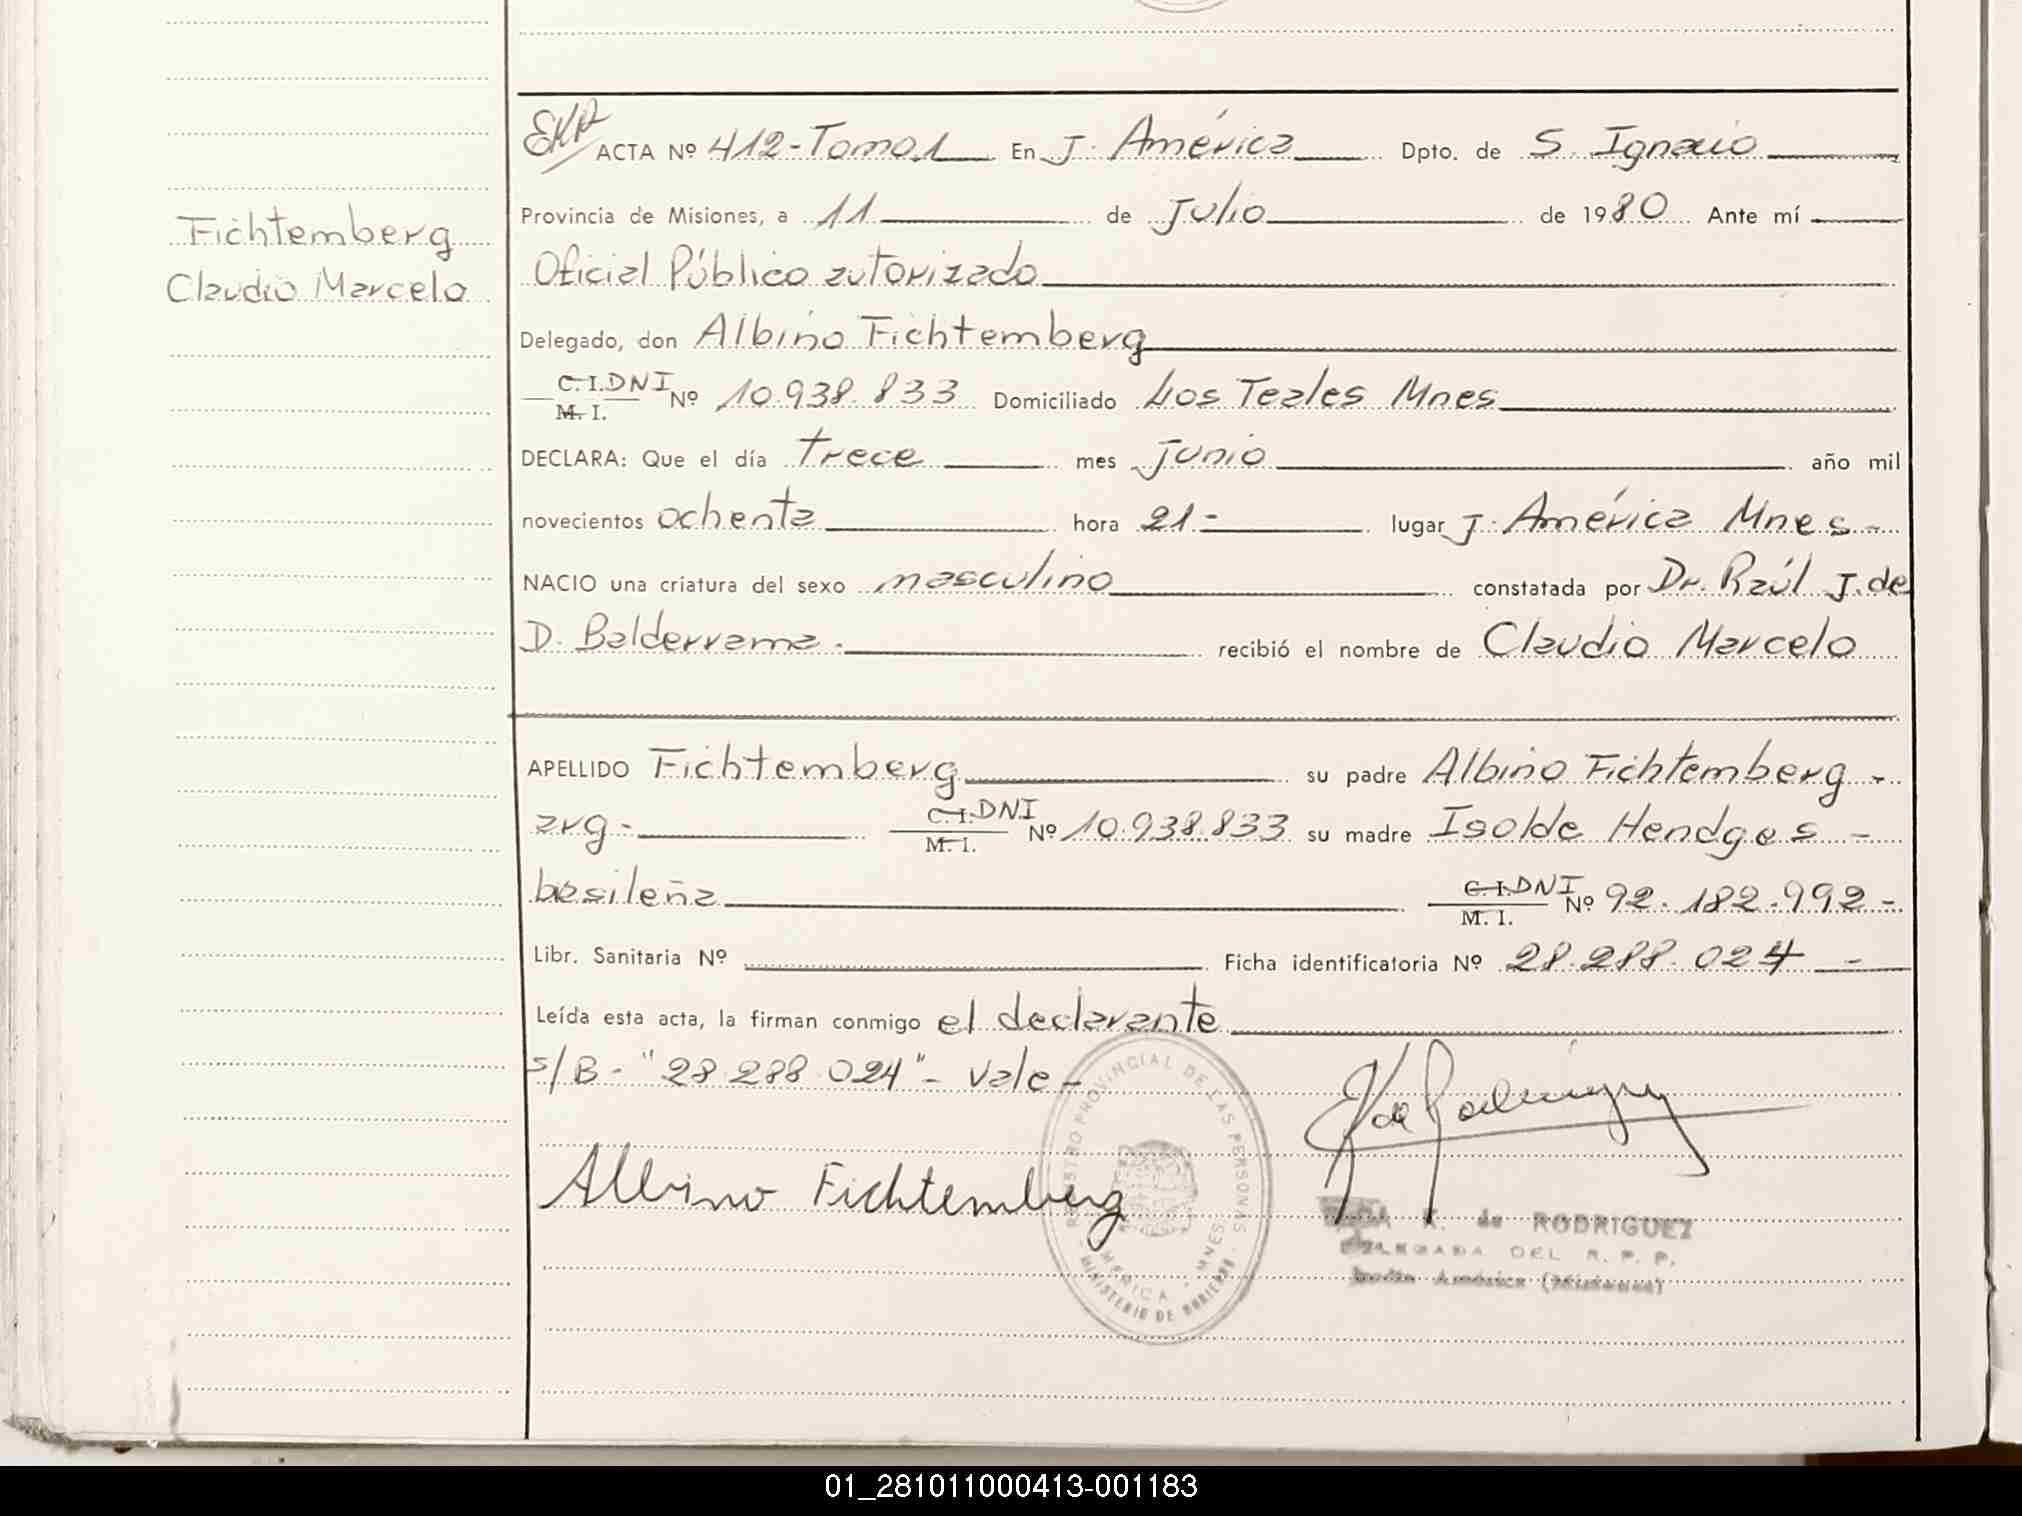 EKR ACTA Nº 412-Tomo 1 En J. América Dpto. de S. Ignacio
Provincia de Misiones, a 11 de Julio de 1980 Ante mí
Oficial Público autorizado
Fichtemberg
Claudio Marcelo
Delegado, don Albino Fichtemberg
C.I. DNI
M. I. Nº 10.938.833 Domiciliado Los Teales Mnes
DECLARA: Que el día trece mes junio año mil
novecientos ochenta hora 21.- lugar J. América Mnes.-
NACIO una criatura del sexo masculino constatada por Dr. Raúl J. de
D. Balderrama.- recibió el nombre de Claudio Marcelo
APELLIDO Fichtemberg su padre Albino Fichtemberg -
arg.- C.I. DNI
M. I. Nº 10.938.833 su madre Isolde Hendges -
basileña C.I. DNI
M. I. Nº 92.182.992-
Libr. Sanitaria Nº Ficha identificatoria Nº 28.288.024 -
Leída esta acta, la firman conmigo el declarante
s/B - "28.288.024" - Vale -
Albino Fichtemberg
REGISTRO PROVINCIAL DE LAS PERSONAS
MINISTERIO DE GOBIERNO
AMERICA - MNES
K. de Rodriguez
K. de RODRIGUEZ
DELEGADA DEL R. P. P.
Jardín América (Misiones)
01_281011000413-001183